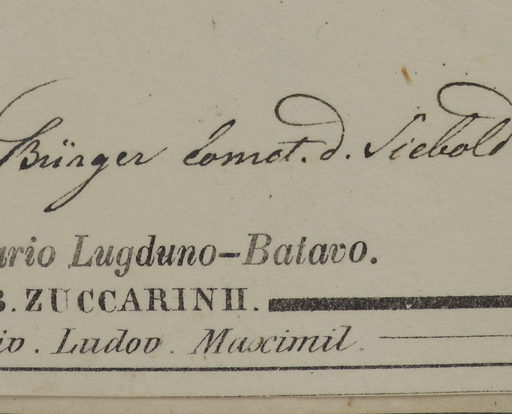 Bürger comct. d. Siebold
ario Lugduno–Batavo.
B. ZUCCARINII.
io. Ludov. Maximil.